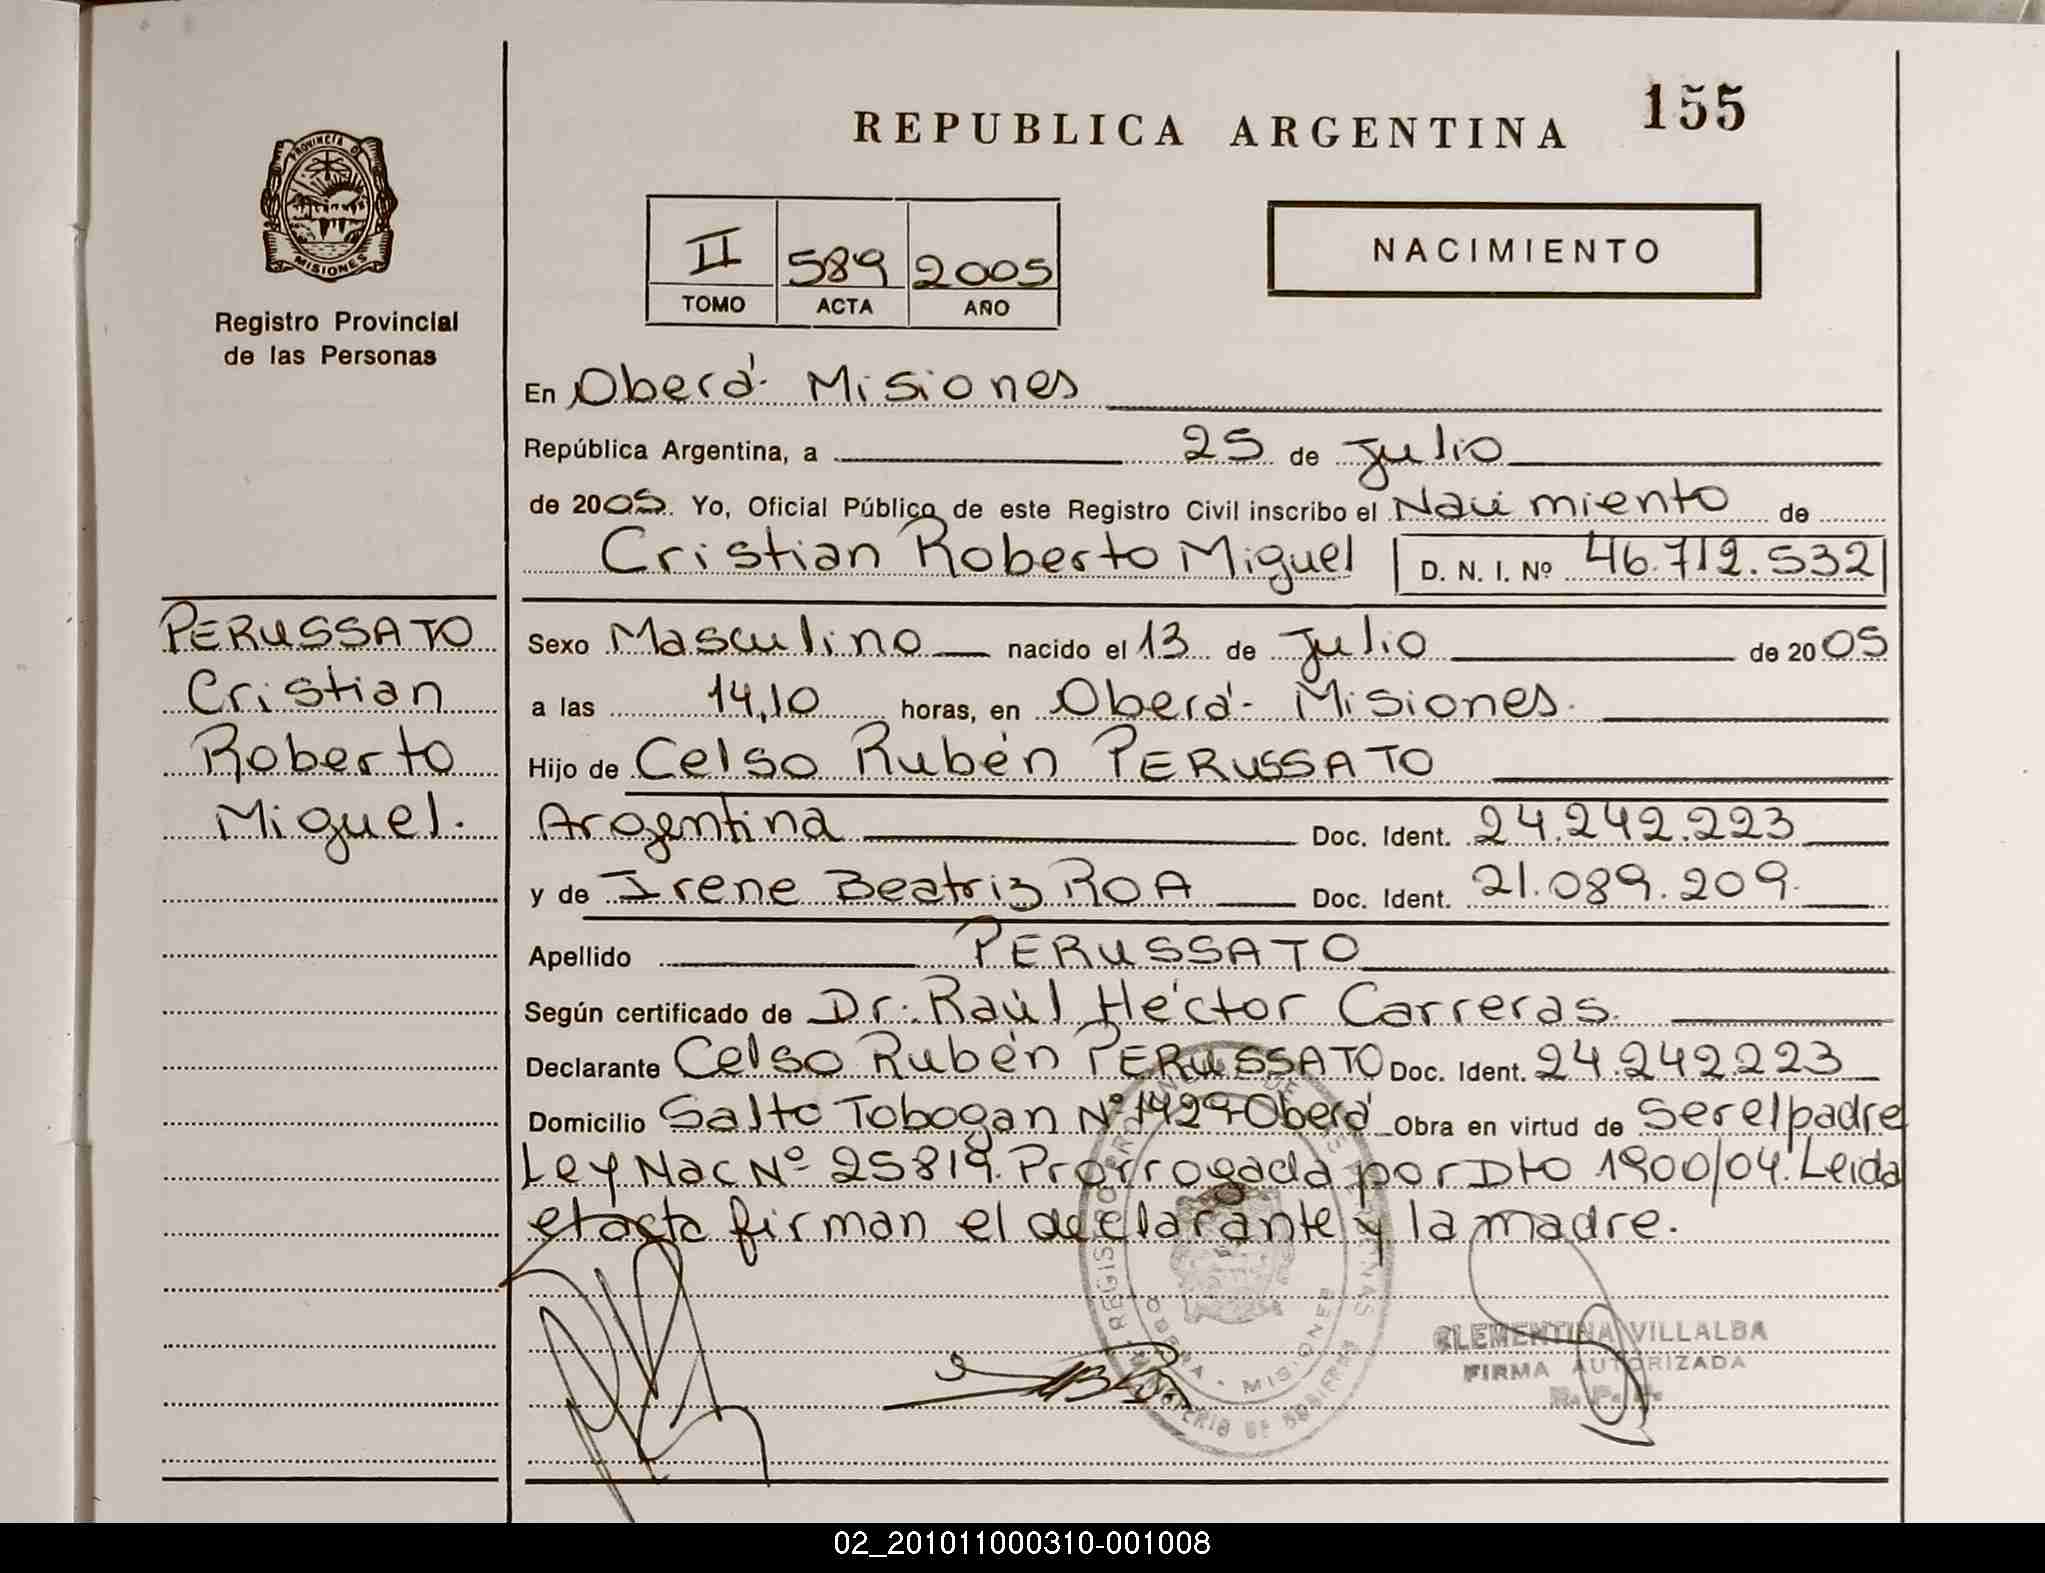 REPUBLICA ARGENTINA 155
PROVINCIA D
MISIONES
Registro Provincial
de las Personas
II 589 2005
TOMO ACTA AÑO
NACIMIENTO
En Oberá - Misiones
República Argentina, a 25 de Julio
de 2005. Yo, Oficial Público de este Registro Civil inscribo el Nacimiento de
Cristian Roberto Miguel D. N. I. Nº 46.712.532
PERUSSATO
Cristian
Roberto
Miguel.
Sexo Masculino nacido el 13 de Julio de 2005
a las 14,10 horas, en Oberá - Misiones.
Hijo de Celso Rubén PERUSSATO
Argentina Doc. Ident. 24.242.223
y de Irene Beatriz ROA Doc. Ident. 21.089.209.
Apellido PERUSSATO
Según certificado de Dr. Raúl Héctor Carreras.
Declarante Celso Rubén PERUSSATO Doc. Ident. 24.242.223
Domicilio Salto Tobogan Nº 1429 Oberá Obra en virtud de ser el padre
Ley Nac Nº 25819. Prorrogada por Dto 1900/04. Leida
el acta firman el declarante y la madre.
CLEMENTINA VILLALBA
FIRMA AUTORIZADA
R. P. P.
OBERA - MISIONES
MINISTERIO DE GOBIERNO
02_201011000310-001008